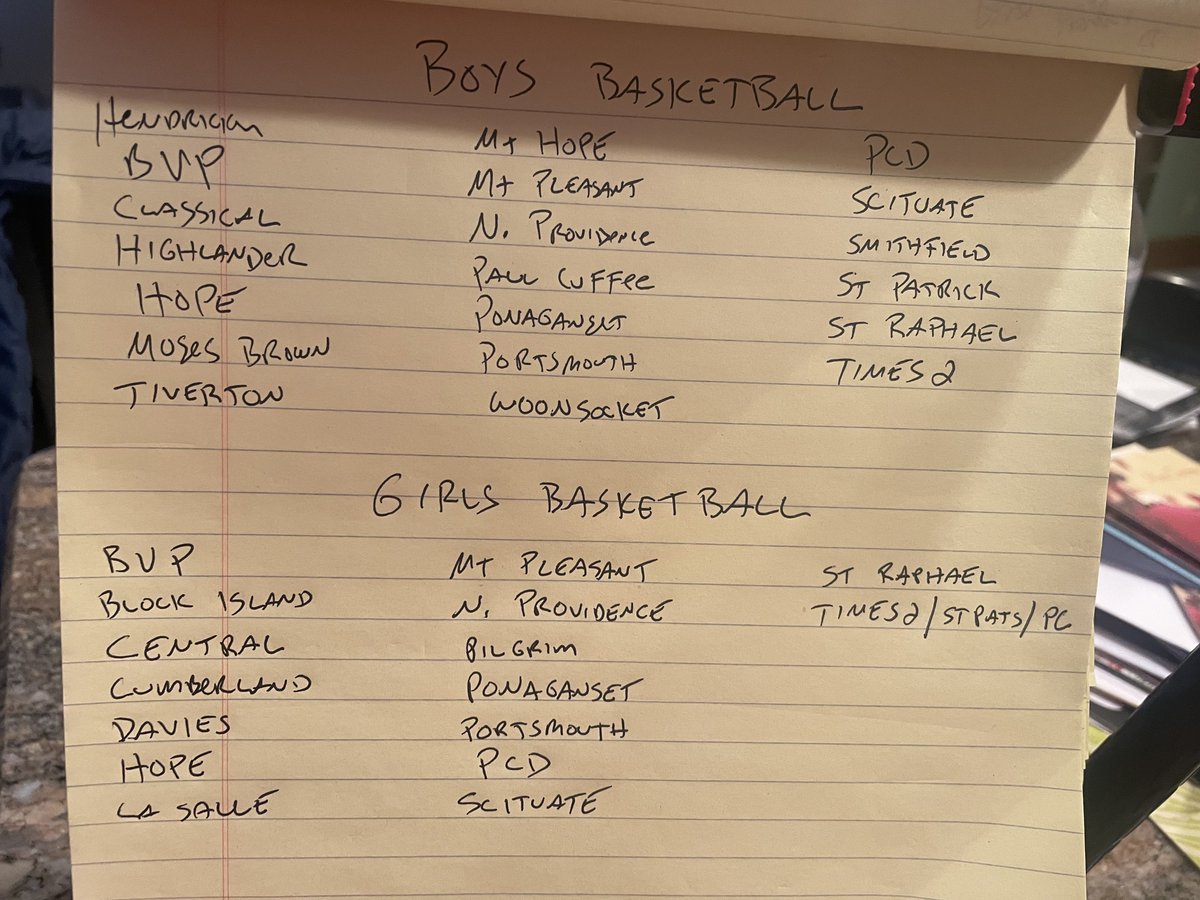 BOYS BASKETBALL
HENDRICKEN MT HOPE PCD
BVP MT PLEASANT SCITUATE
CLASSICAL N. PROVIDENCE SMITHFIELD
HIGHLANDER PAUL CUFFEE ST PATRICK
HOPE PONAGANSET ST RAPHAEL
MOSES BROWN PORTSMOUTH TIMES 2
TIVERTON WOONSOCKET
GIRLS BASKETBALL
BVP MT PLEASANT ST RAPHAEL
BLOCK ISLAND N. PROVIDENCE TIMES 2/ST PATS/PC
CENTRAL PILGRIM
CUMBERLAND PONAGANSET
DAVIES PORTSMOUTH
HOPE PCD
LA SALLE SCITUATE